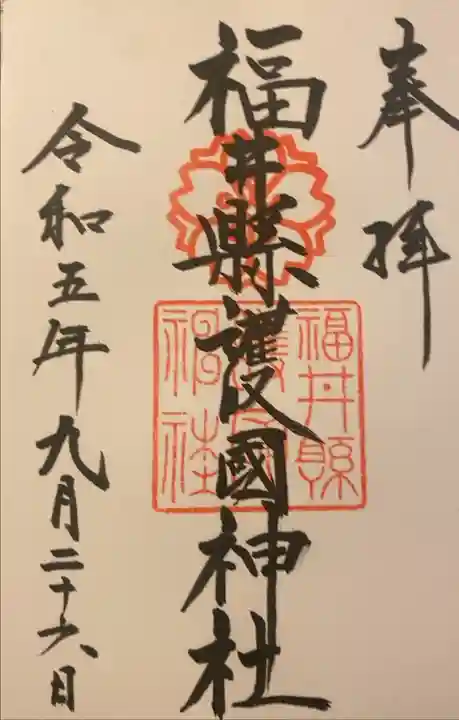 奉拝
福井縣護國神社
福井縣護國神社
令和五年九月二十六日